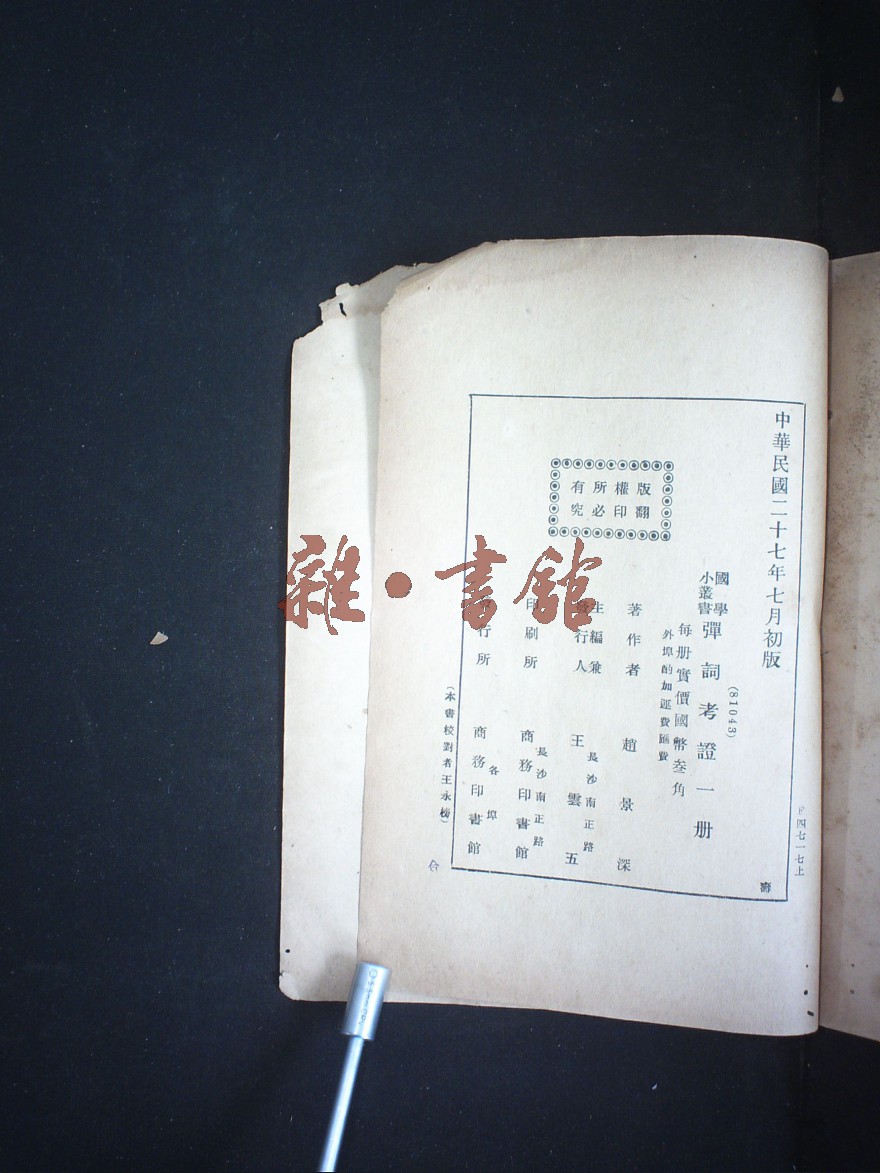 中華民國二十七年七月初版
國學
小叢書
彈詞考證一册
(81043)
每册實價國幣叁角
外埠酌加運費匯費
版權所有
翻印必究
著作者 趙景深
主編兼
發行人
長沙南正路
王雲五
印刷所
長沙南正路
商務印書館
發行所
各埠
商務印書館
(本書校對者王永榜)
下四七一七上
壽
雜·書館